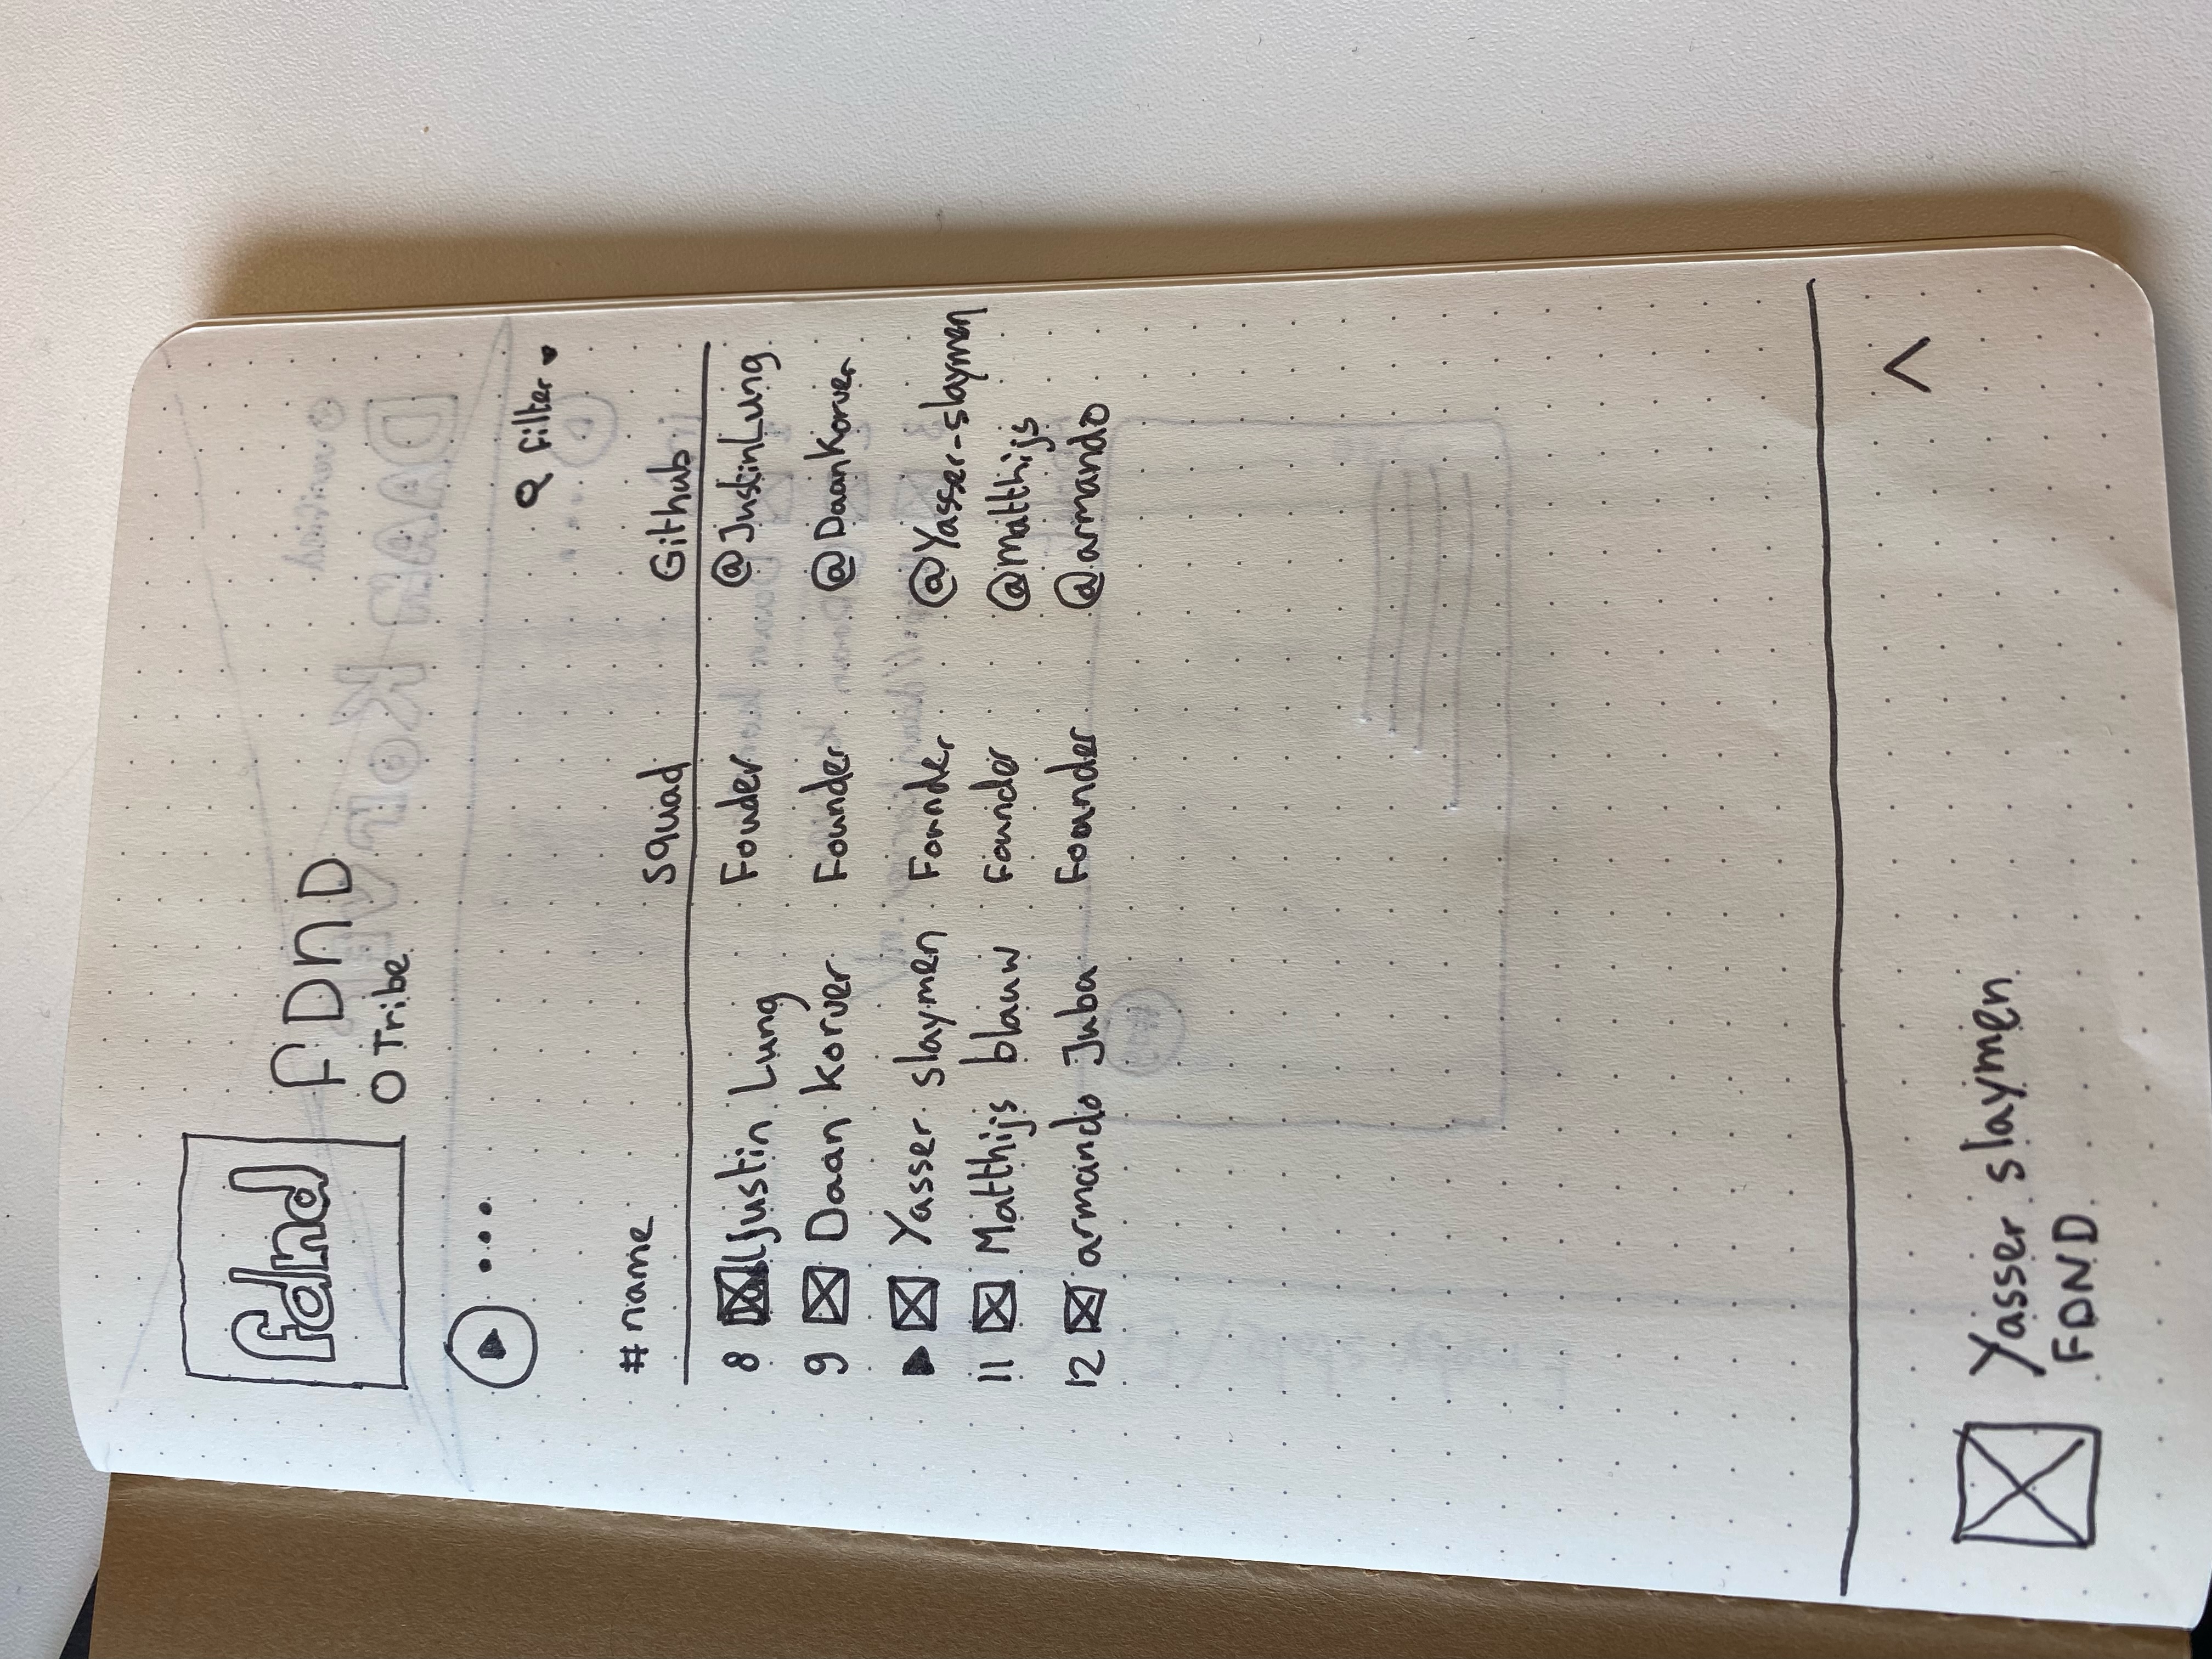 fdnd
FDND
Tribe
filter
# name squad Github
8 Justin Lung Fouder @JustinLung
9 Daan Korver Founder @DaanKorver
Yasser slaymen Founder @Yasser-slaymen
11 Matthijs blauw Founder @Matthijs
12 armando Juba Founder @armando
Yasser slaymen
FDND